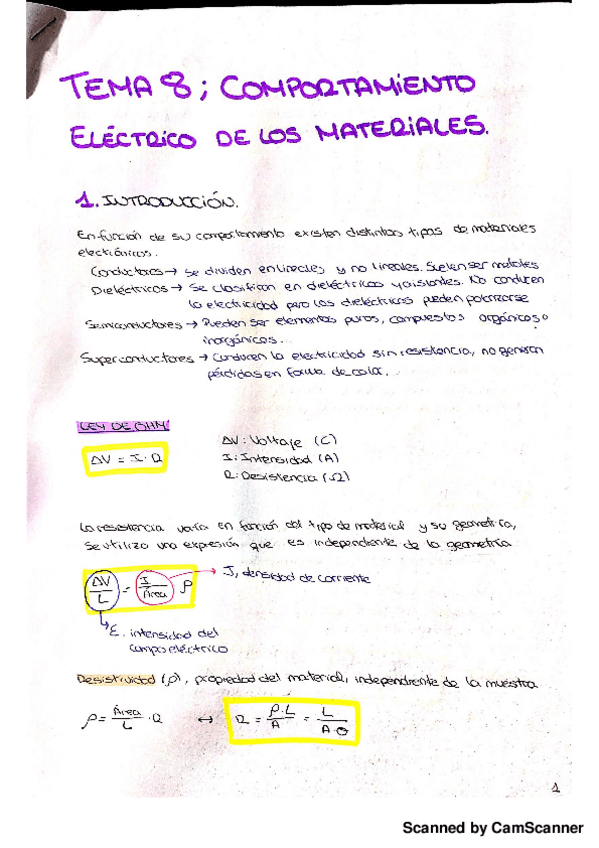 TEMA 8; COMPORTAMIENTO
ELÉCTRICO DE LOS MATERIALES.
1. INTRODUCCIÓN.
En función de su comportamiento existen distintos tipos de materiales
electrónicos.
Conductores → Se dividen en lineales y no lineales. Suelen ser metales
Dieléctricos → Se clasifican en dieléctricos y aislantes. No conducen
la electricidad pero los dieléctricos pueden polarizarse
Semiconductores → Pueden ser elementos puros, compuestos orgánicos o
inorgánicos...
Superconductores → Conducen la electricidad sin resistencia, no generan
pérdidas en forma de calor...
LEY DE OHM
ΔV = I · R
ΔV: Voltaje (C)
I: Intensidad (A)
R: Resistencia (Ω)
La resistencia varía en función del tipo de material y su geometría,
se utiliza una expresión que es independiente de la geometría
ΔV/L = I/Área ρ → J, densidad de corriente
E. intensidad del
campo eléctrico
Resistividad (ρ), propiedad del material, independiente de la muestra
ρ = Área/L · R ↔ R = ρ·L/A = L/A·σ
1
Scanned by CamScanner